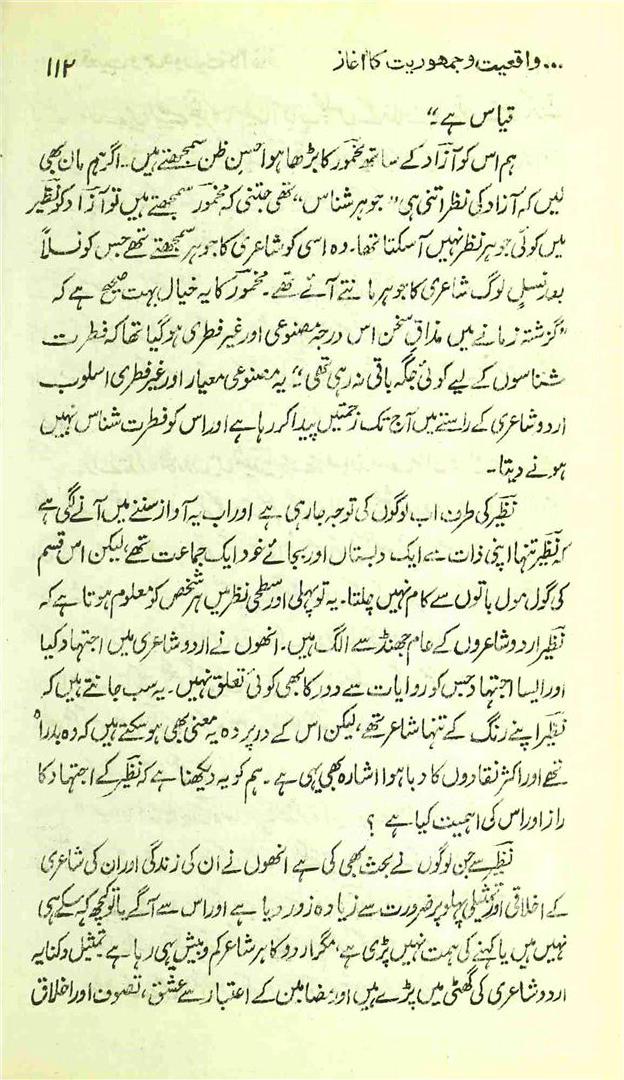 ...واقعیت و جمہوریت کا آغاز ۱۱۲
قیاس ہے۔“
ہم اس کو آزاد کے ساتھ مخمور کا بڑھا ہوا حسنِ ظن سمجھتے ہیں۔ اگر ہم مان بھی
لیں کہ آزاد کی نظر اتنی ہی ”جوہر شناس“ تھی جتنی کہ مخمور سمجھتے ہیں تو آزاد کو نظیر
میں کوئی جوہر نظر نہیں آسکتا تھا۔ وہ اسی کو شاعری کا جوہر سمجھتے تھے جس کو نسلاً
بعد نسلٍ لوگ شاعری کا جوہر مانتے آئے تھے۔ مخمور کا یہ خیال بہت صحیح ہے کہ
”گزشتہ زمانے میں مذاقِ سخن اس درجہ مصنوعی اور غیر فطری ہوگیا تھا کہ فطرت
شناسوں کے لیے کوئی جگہ باقی نہ رہی تھی“۔ یہ مصنوعی معیار اور غیر فطری اسلوب
اردو شاعری کے راستے میں آج تک زحمتیں پیدا کر رہا ہے اور اس کو فطرت شناس نہیں
ہونے دیتا۔
نظیر کی طرف اب لوگوں کی توجہ جارہی ہے اور اب یہ آواز سننے میں آنے لگی ہے
کہ نظیر تنہا اپنی ذات سے ایک دبستاں اور بجائے خود ایک جماعت تھے، لیکن اس قسم
کی گول مول باتوں سے کام نہیں چلتا۔ یہ تو پہلی اور سطحی نظر میں ہر شخص کو معلوم ہوتا ہے کہ
نظیر اردو شاعروں کے عام جھنڈ سے الگ ہیں۔ انھوں نے اردو شاعری میں اجتہاد کیا
اور ایسا اجتہاد جس کو روایات سے دور کا بھی کوئی تعلق نہیں۔ یہ سب جانتے ہیں کہ
نظیر اپنے رنگ کے تنہا شاعر تھے، لیکن اس کے درپردہ یہ معنی بھی ہوسکتے ہیں کہ وہ بدراہ
تھے اور اکثر نقادوں کا دبا ہوا اشارہ بھی یہی ہے۔ ہم کو یہ دیکھنا ہے کہ نظیر کے اجتہاد کا
راز اور اس کی اہمیت کیا ہے ؟
نظیر سے جن لوگوں نے بحث بھی کی ہے انھوں نے ان کی زندگی اور ان کی شاعری
کے اخلاقی اور تمثیلی پہلو پر ضرورت سے زیادہ زور دیا ہے اور اس سے آگے یا تو کچھ کہہ سکے ہی
نہیں ہیں یا کہنے کی ہمت نہیں پڑی ہے، مگر اردو کا ہر شاعر کم و بیش یہی رہا ہے تمثیل و کنایہ
اردو شاعری کی گھٹی میں پڑے ہیں اور مضامین کے اعتبار سے عشق، تصوف اور اخلاق